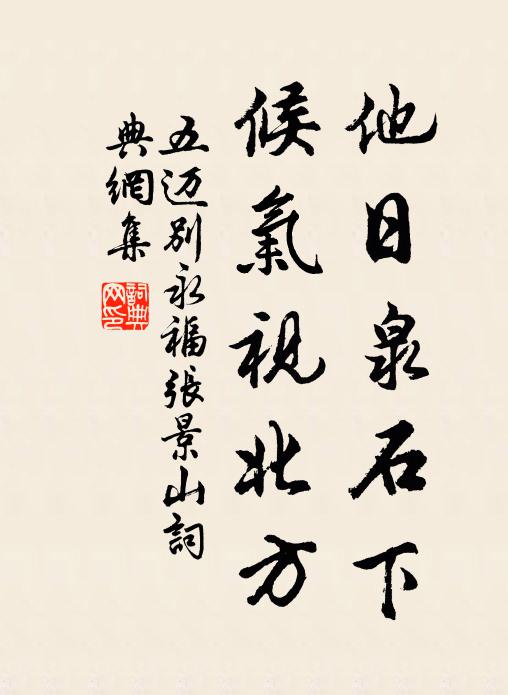 他日泉石下
候氣視北方
五迈别永福張景山詞
典網集
詞典
网印